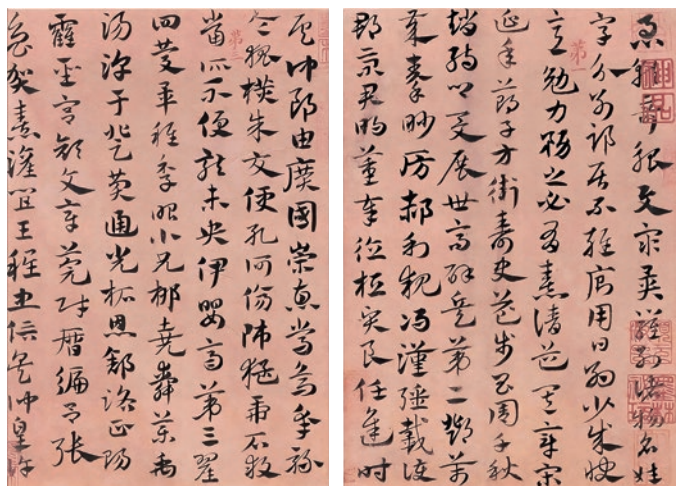 急就奇觚與衆異羅列諸物名姓
第一
字分別部居不雜廁用日約少誠快
意勉力務之必有憙請道其章宋
延年鄭子方衛益壽史步昌周千秋
趙孺卿爰展世高辟兵第二鄧萬
歲秦眇房郝利親馮漢彊戴護
郡景君明董奉德桓賢良任逢時
侯仲郎由廣國榮惠常烏承祿
令狐橫朱交便孔何傷師猛虎石敢
第三
當所不侵龍未央伊嬰齊第三翟
回慶畢稚季昭小兄柳堯舜藥禹
湯淳于登費通光柘恩舒路正陽
霍聖宮顏文章莞財曆徧呂張
魯賀憙灌宜王程忠信吳仲皇許